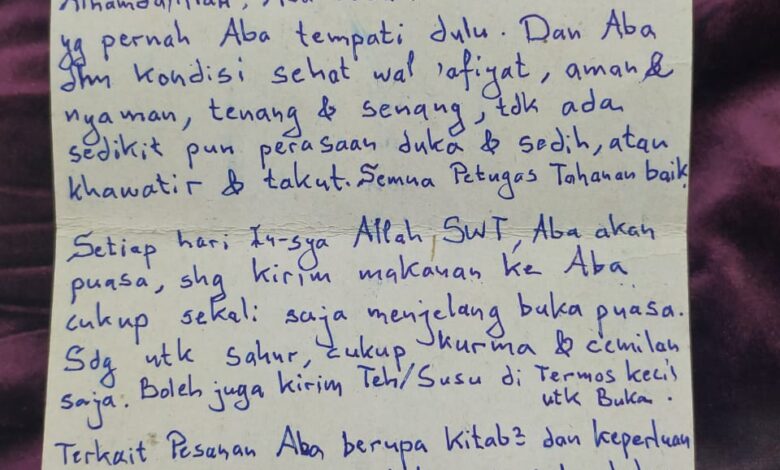 Alhamdulillah, Aba
yg pernah Aba tempati dulu. Dan Aba
dlm kondisi sehat wal 'afiyat, aman &
nyaman, tenang & senang, tdk ada
sedikit pun perasaan duka & sedih, atau
khawatir & takut. Semua Petugas Tahanan baik
Setiap hari In-sya Allah SWT, Aba akan
puasa, shg kirim makanan ke Aba
cukup sekali saja menjelang buka puasa.
Sdg utk sahur, cukup kurma & cemilan
saja. Boleh juga kirim Teh/Susu di Termos kecil
utk Buka.
Terkait Pesanan Aba berupa kitab² dan keperluan